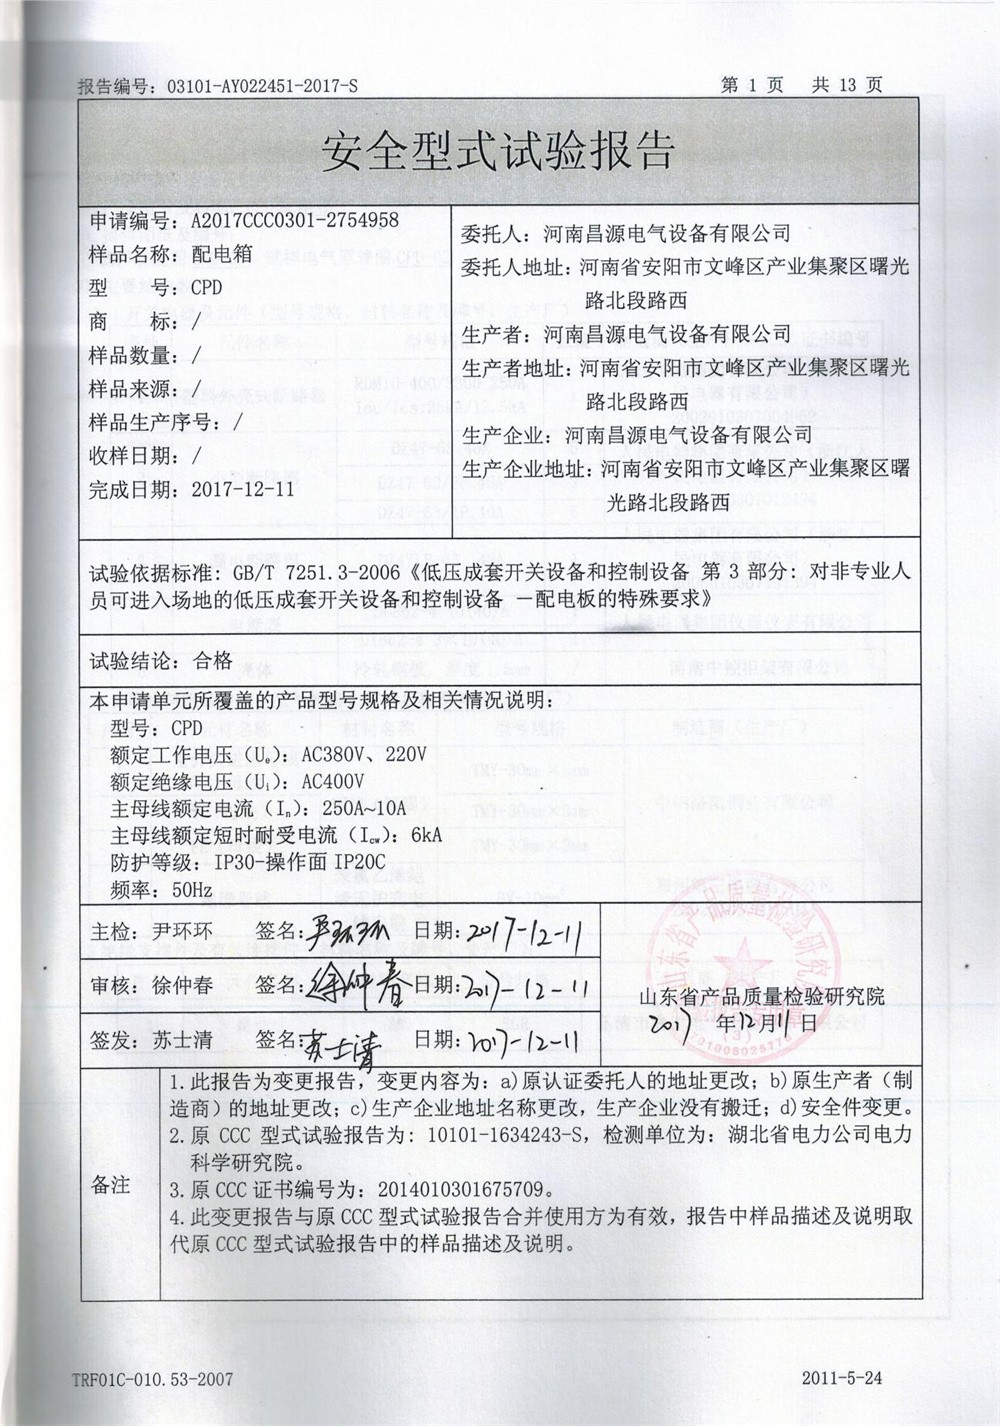 报告编号：03101-AY022451-2017-S
第 1 页 共 13 页
安全型式试验报告
申请编号：A2017CCC0301-2754958
样品名称：配电箱
型 号：CPD
商 标：/
样品数量：/
样品来源：/
样品生产序号：/
收样日期：/
完成日期：2017-12-11
委托人：河南昌源电气设备有限公司
委托人地址：河南省安阳市文峰区产业集聚区曙光
路北段路西
生产者：河南昌源电气设备有限公司
生产者地址：河南省安阳市文峰区产业集聚区曙光
路北段路西
生产企业：河南昌源电气设备有限公司
生产企业地址：河南省安阳市文峰区产业集聚区曙
光路北段路西
试验依据标准：GB/T 7251.3-2006《低压成套开关设备和控制设备 第 3 部分：对非专业人
员可进入场地的低压成套开关设备和控制设备 —配电板的特殊要求》
试验结论：合格
本申请单元所覆盖的产品型号规格及相关情况说明：
型号：CPD
额定工作电压（Ue）：AC380V、220V
额定绝缘电压（Ui）：AC400V
主母线额定电流（In）：250A~10A
主母线额定短时耐受电流（Icw）：6kA
防护等级：IP30-操作面 IP20C
频率：50Hz
主检：尹环环 签名：尹环环 日期：2017-12-11
审核：徐仲春 签名：徐仲春 日期：2017-12-11
签发：苏士清 签名：苏士清 日期：2017-12-11
山东省产品质量检验研究院
2017 年 12 月 11 日
山东省产品质量检验研究院
（3）
备注
1.此报告为变更报告，变更内容为：a)原认证委托人的地址更改；b)原生产者（制
造商）的地址更改；c)生产企业地址名称更改，生产企业没有搬迁；d)安全件变更。
2.原 CCC 型式试验报告为：10101-1634243-S，检测单位为：湖北省电力公司电力
科学研究院。
3.原 CCC 证书编号为：2014010301675709。
4.此变更报告与原 CCC 型式试验报告合并使用方为有效，报告中样品描述及说明取
代原 CCC 型式试验报告中的样品描述及说明。
TRF01C-010.53-2007
2011-5-24